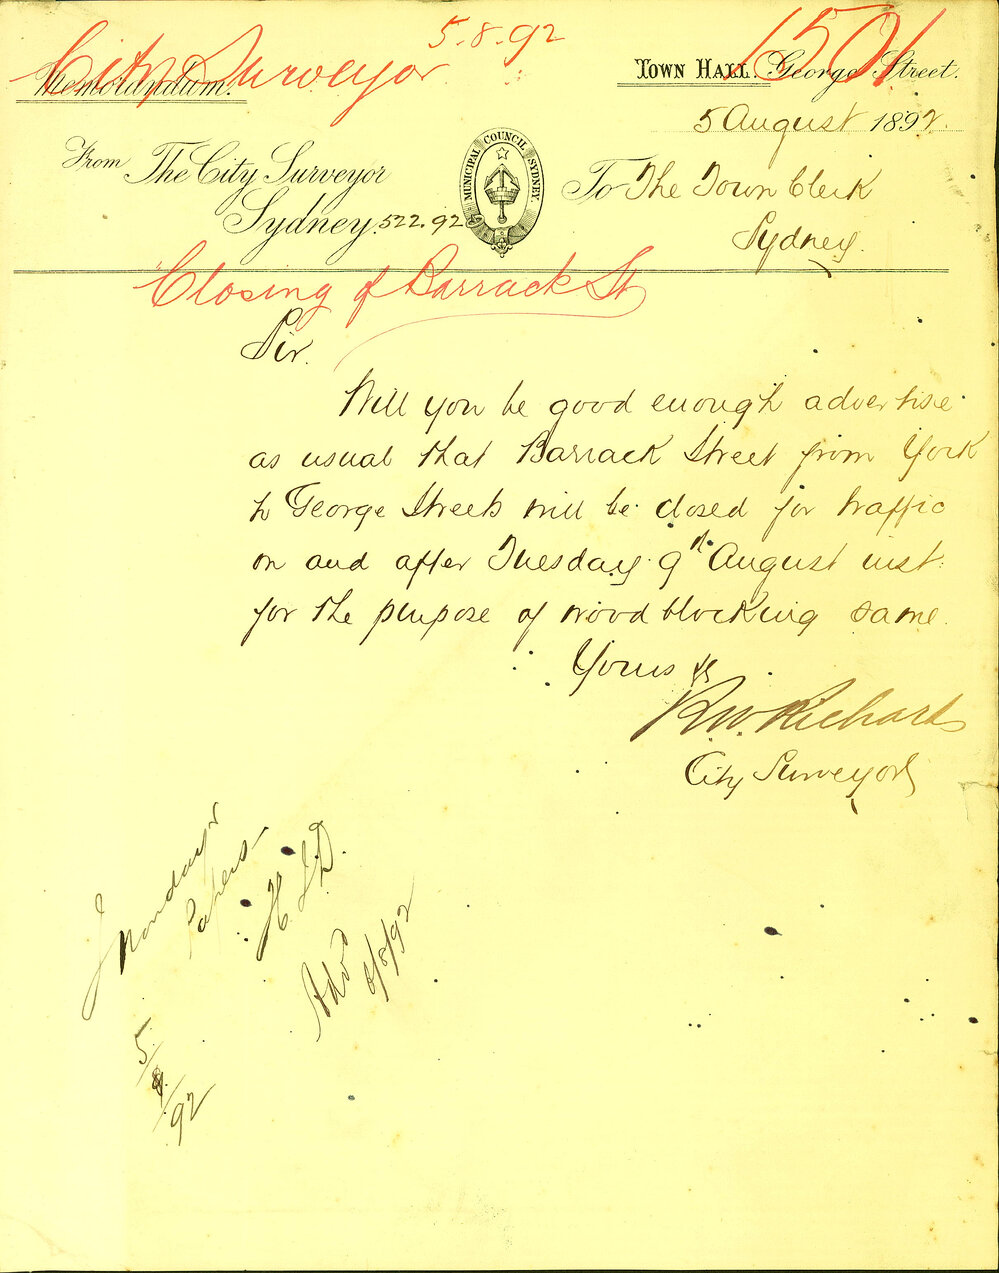 City Surveyor 5.8.92 1501
Memorandum. Town Hall George Street.
5 August 1892.
From The City Surveyor
Sydney. 522.92
MUNICIPAL COUNCIL SYDNEY.
To The Town Clerk
Sydney.
Closing of Barrack St
Sir.
Will you be good enough advertise
as usual that Barrack Street from York
to George Streets will be closed for traffic
on and after Tuesday 9th August inst.
for the purpose of wood blocking same.
Yours &c
R.W. Richards
City Surveyor
Monday's
Papers
H.J.D.
5/8/92
Advd 6/8/92